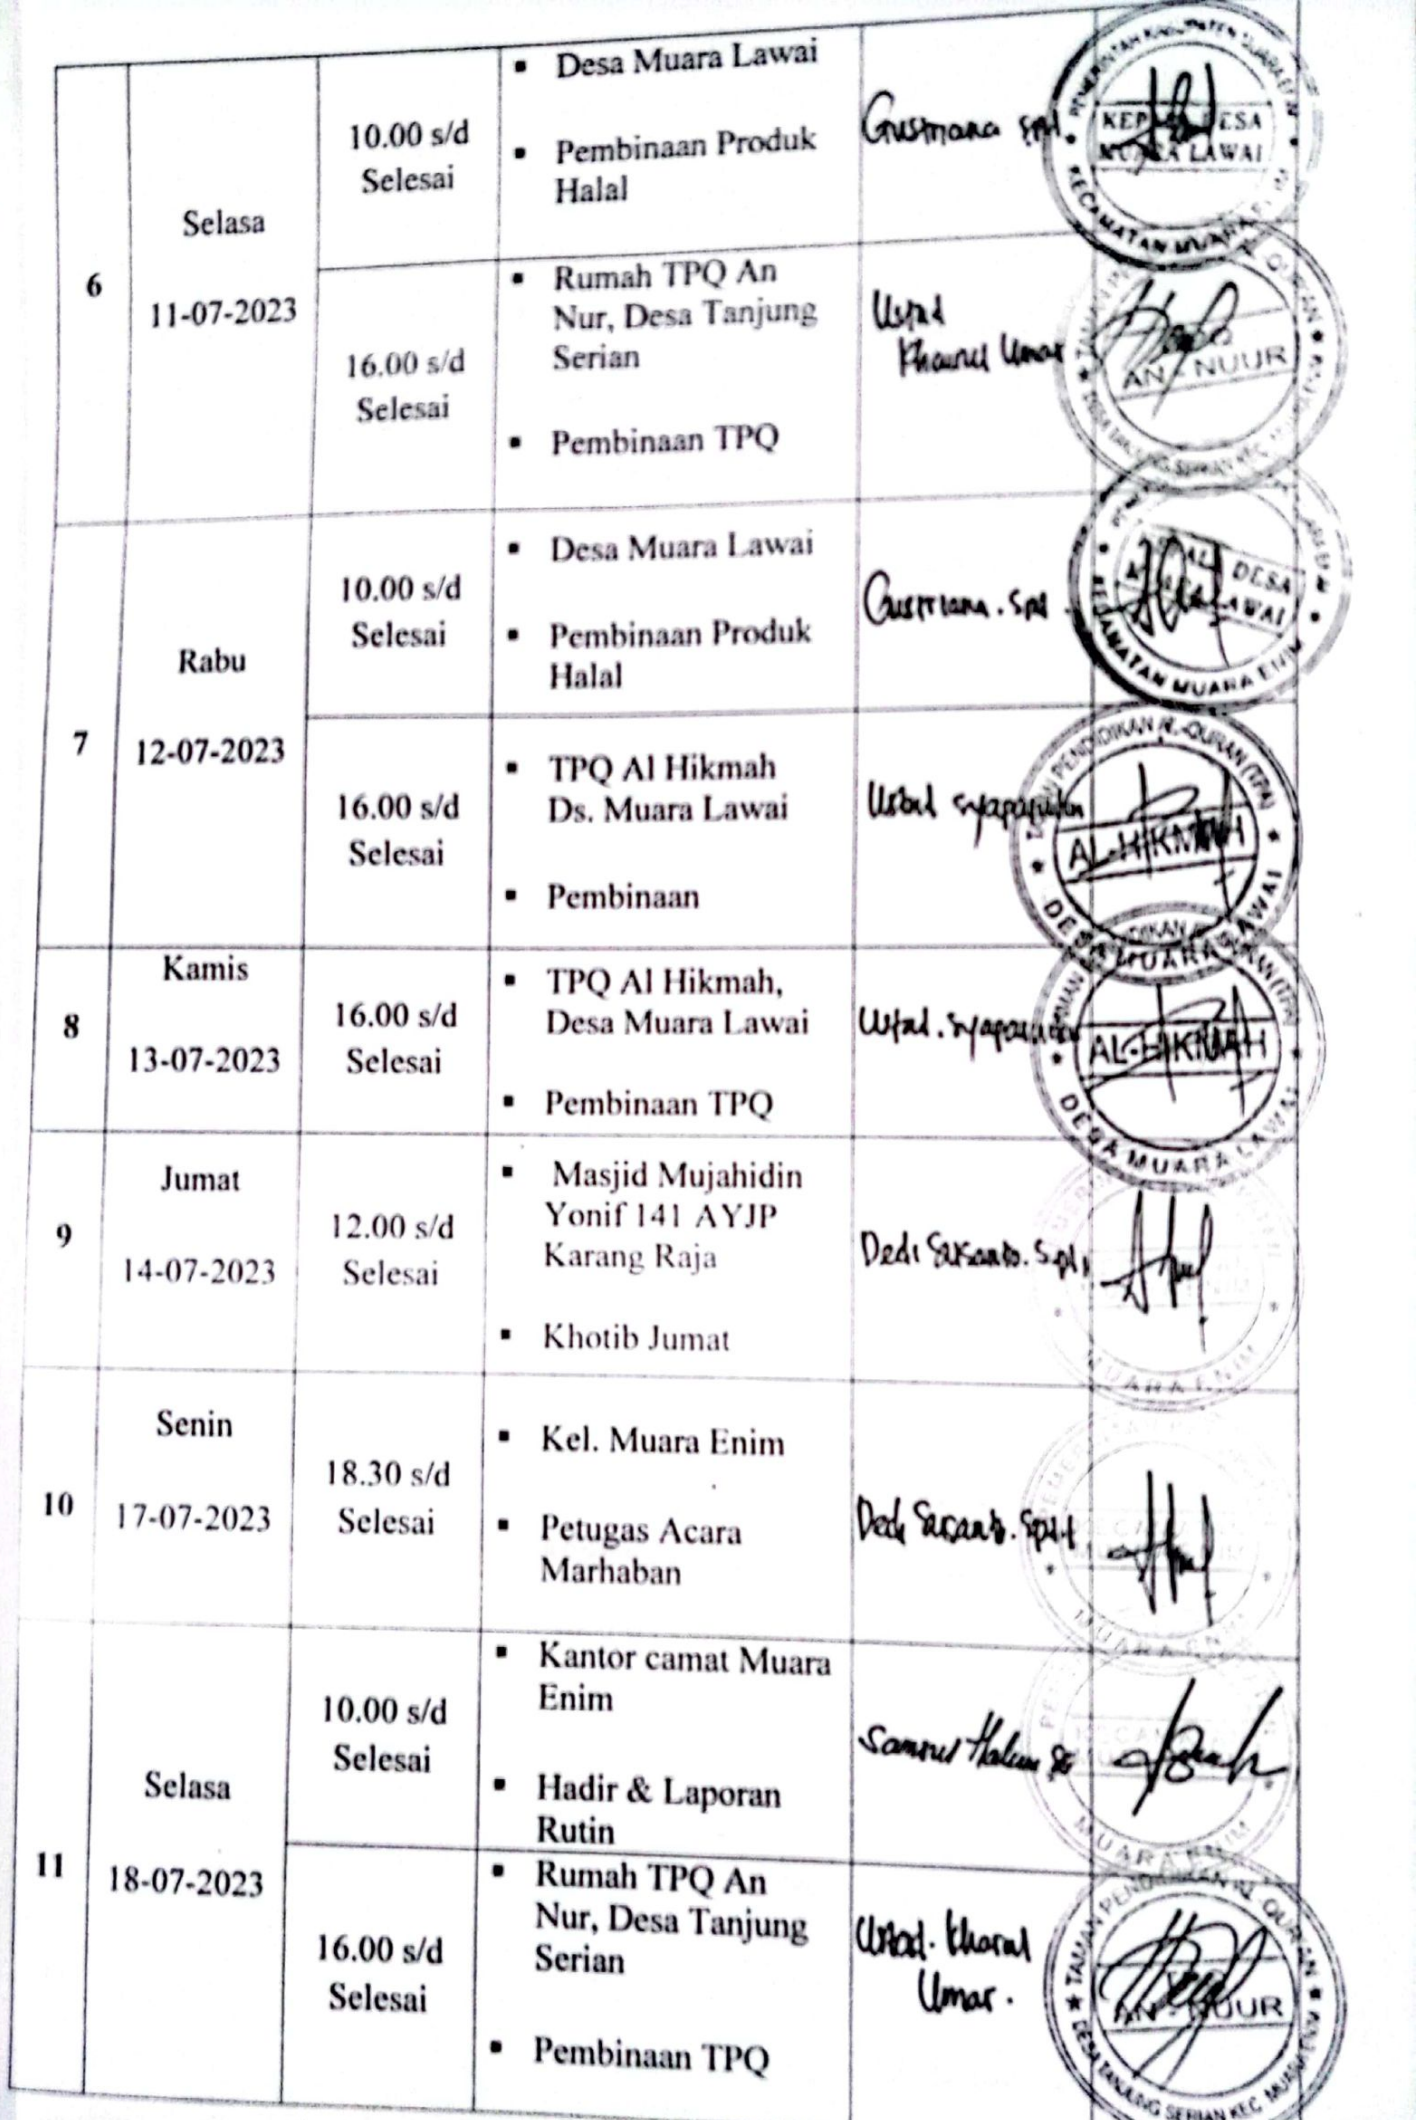 6
Selasa
11-07-2023
10.00 s/d
Selesai
▪ Desa Muara Lawai
▪ Pembinaan Produk
Halal
Gusmana spd
PEMERINTAH KABUPATEN MUARA ENIM
KEPALA DESA
MUARA LAWAI
KECAMATAN MUARA ENIM
16.00 s/d
Selesai
▪ Rumah TPQ An
Nur, Desa Tanjung
Serian
▪ Pembinaan TPQ
Ustad
Khairul Umar
AN-NUUR
7
Rabu
12-07-2023
10.00 s/d
Selesai
▪ Desa Muara Lawai
▪ Pembinaan Produk
Halal
DESA
LAWAI
KECAMATAN MUARA ENIM
16.00 s/d
Selesai
▪ TPQ Al Hikmah
Ds. Muara Lawai
▪ Pembinaan
Ustad
PENDIDIKAN AL-QURAN (TPA)
AL-HIKMAH
DESA MUARA LAWAI
8
Kamis
13-07-2023
16.00 s/d
Selesai
▪ TPQ Al Hikmah,
Desa Muara Lawai
▪ Pembinaan TPQ
Ustad.
AL-HIKMAH
DESA MUARA LAWAI
9
Jumat
14-07-2023
12.00 s/d
Selesai
▪ Masjid Mujahidin
Yonif 141 AYJP
Karang Raja
▪ Khotib Jumat
Dedi Susanto.
MUARA ENIM
10
Senin
17-07-2023
18.30 s/d
Selesai
▪ Kel. Muara Enim
▪ Petugas Acara
Marhaban
Dedi Susanto.
MUARA ENIM
11
Selasa
18-07-2023
10.00 s/d
Selesai
▪ Kantor camat Muara
Enim
▪ Hadir & Laporan
Rutin
Samsul Halim
MUARA ENIM
16.00 s/d
Selesai
▪ Rumah TPQ An
Nur, Desa Tanjung
Serian
▪ Pembinaan TPQ
Ustad. Khairul
Umar.
TAMAN PENDIDIKAN AL-QURAN
AN-NUUR
DESA TANJUNG SERIAN KEC. MUARA ENIM